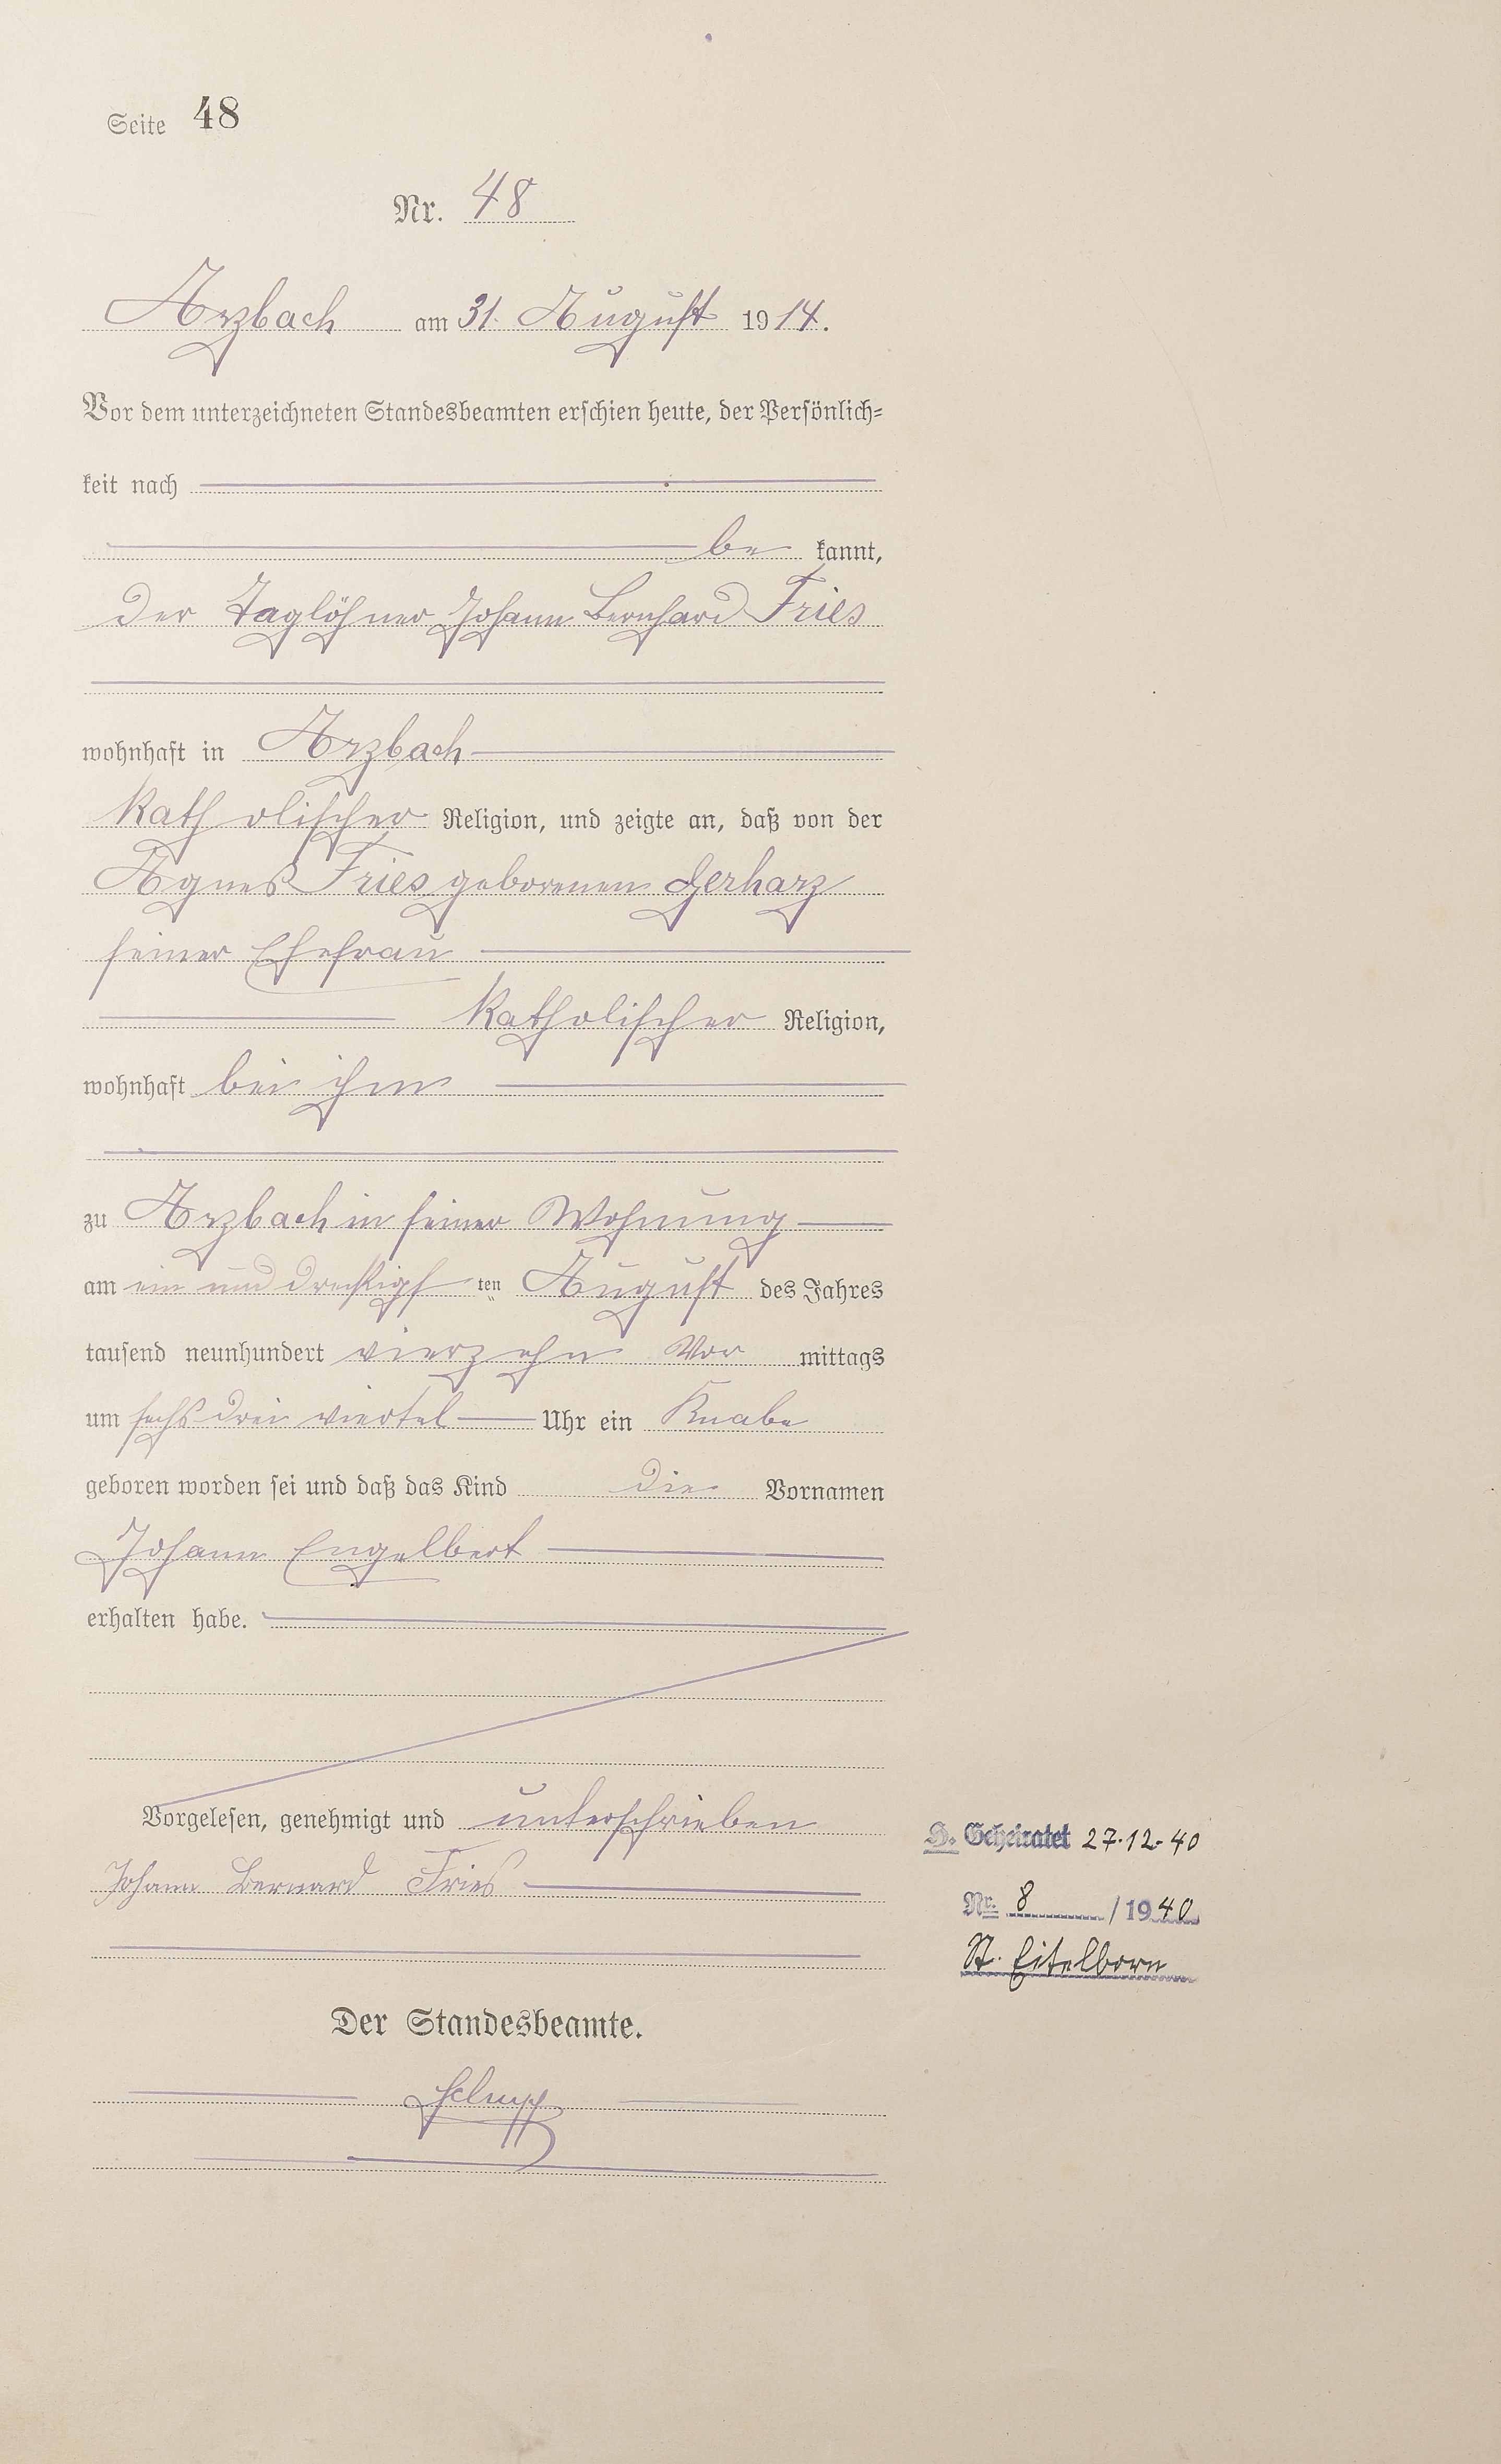 Seite 48
Nr. 48
Arzbach am 31. August 1914.
Vor dem unterzeichneten Standesbeamten erschien heute, der Persönlich=
keit nach
be kannt,
der Taglöhner Johann Bernhard Fries
wohnhaft in Arzbach
katholischer Religion, und zeigte an, daß von der
Agnes Fries geborenen Gerharz
seiner Ehefrau
katholischer Religion,
wohnhaft bei ihm
zu Arzbach in seiner Wohnung
am ein und dreißigsten August des Jahres
tausend neunhundert vierzehn Vor mittags
um sechs drei viertel Uhr ein Knabe
geboren worden sei und daß das Kind die Vornamen
Johann Engelbert
erhalten habe.
Vorgelesen, genehmigt und unterschrieben
Johann Bernard Fries
Der Standesbeamte.
H. Geheiratet 27.12.40
Nr. 8 / 1940
St. Eitelborn